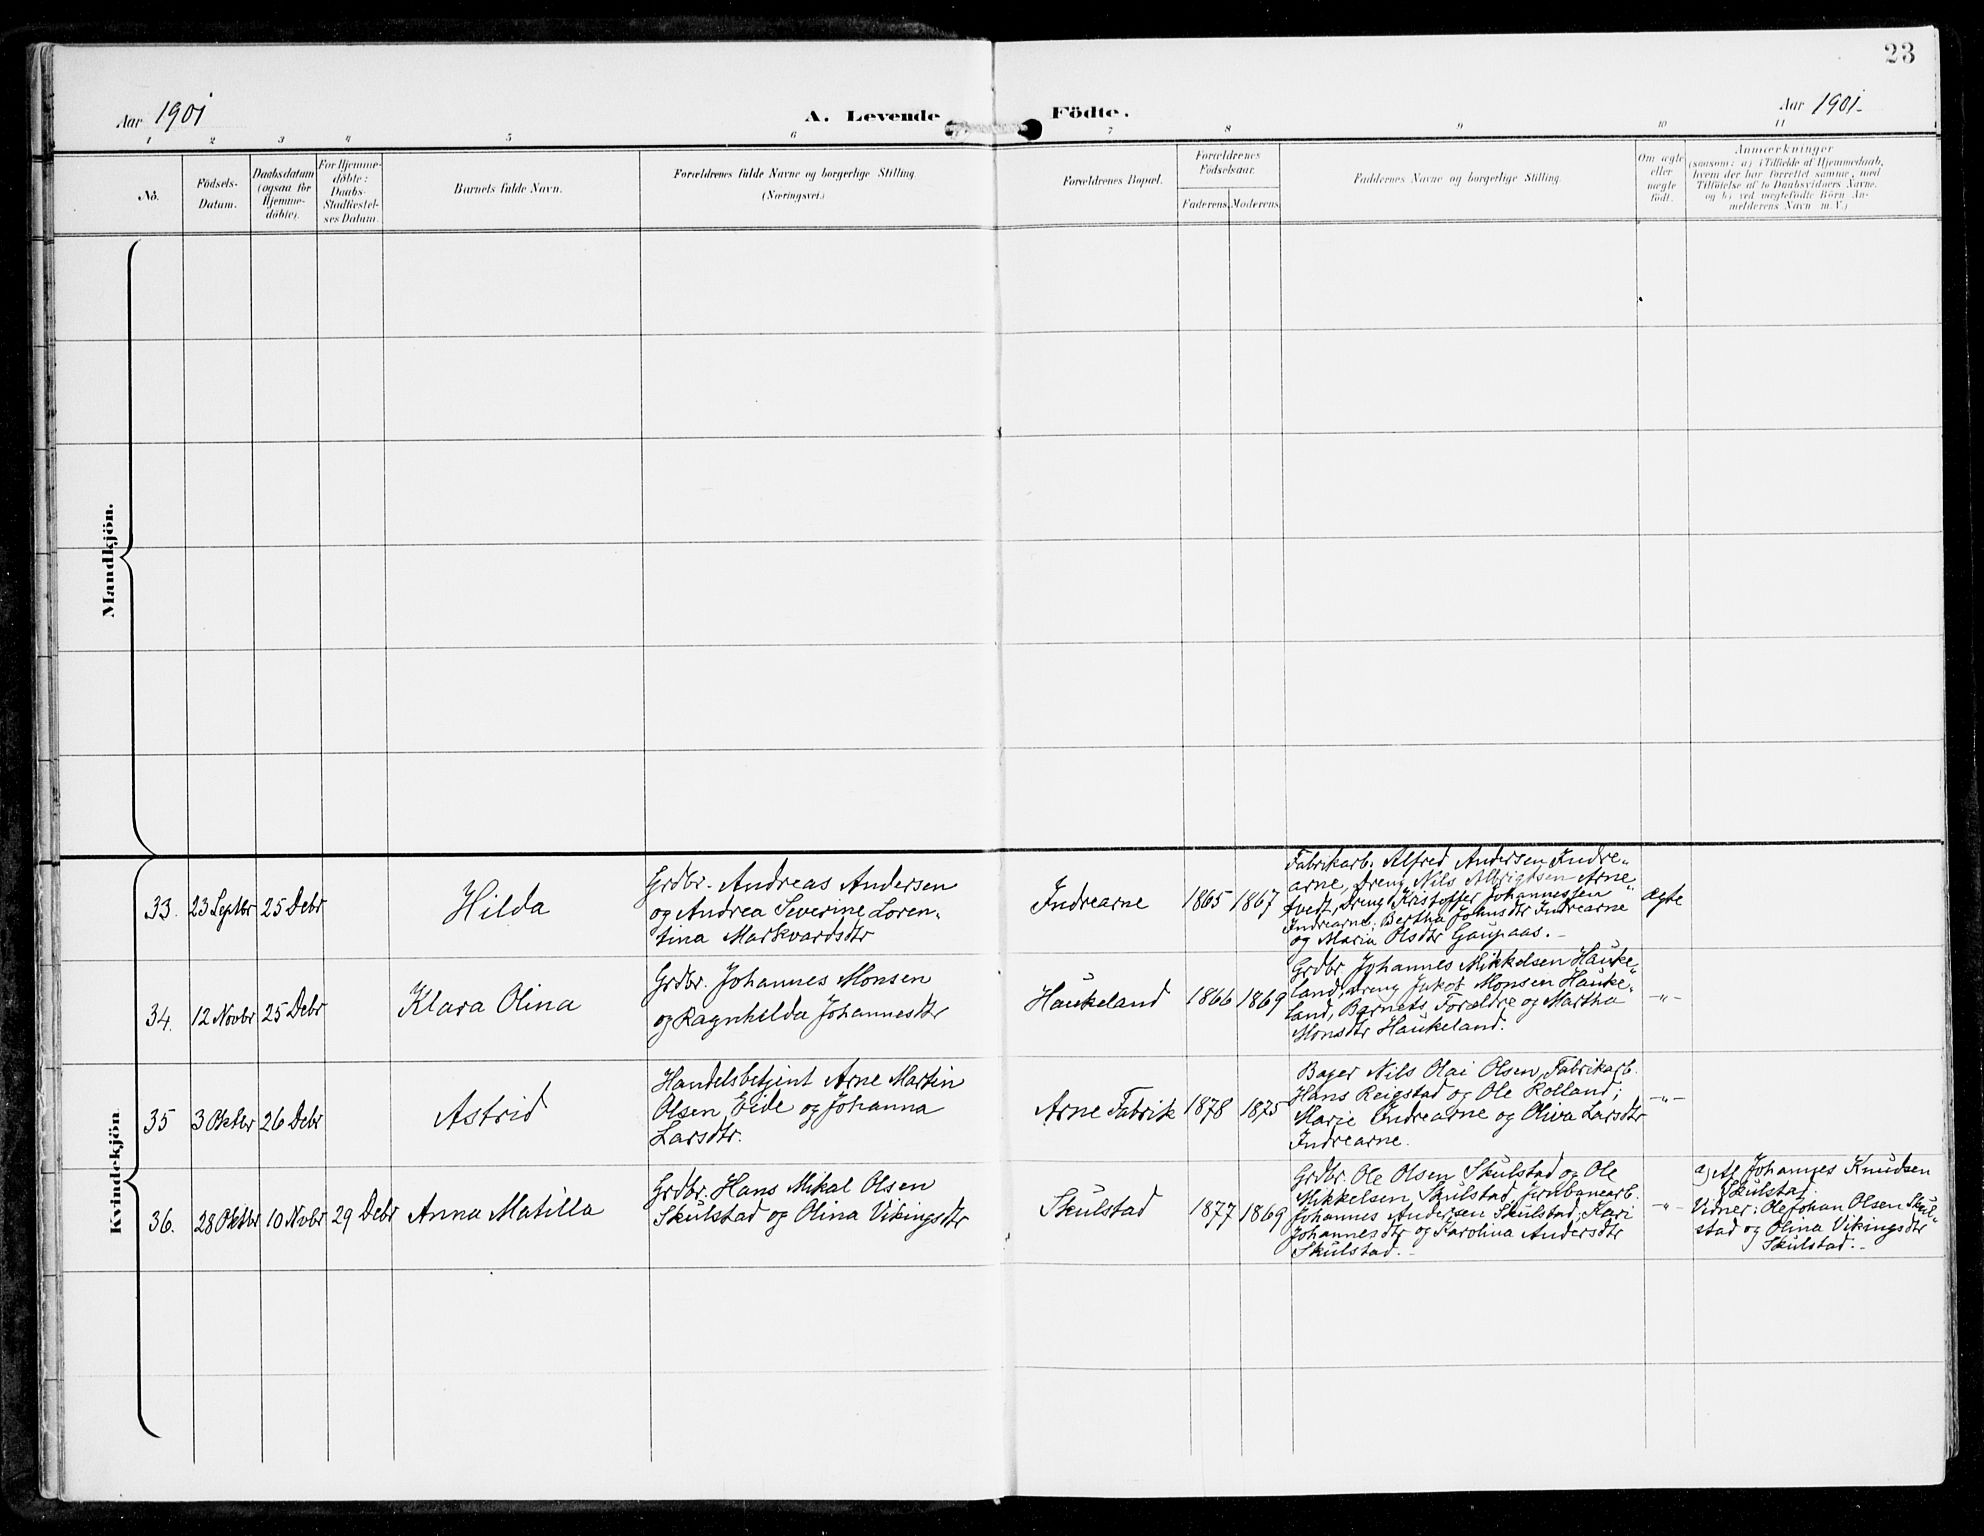 23
Aar 1901
A. Levende Födte.
Aar 1901.
1 2 3 4 5 6 7 8 9 10 11
No.
Födsels-
Datum.
Daabsdatum
(ogsaa for
Hjemme-
döbte).
For Hjemme-
döbte:
Daabs-
Stadfæstel-
ses Datum.
Barnets fulde Navn.
Forældrenes fulde Navne og borgerlige Stilling.
(Næringsvei.)
Forældrenes Bopæl.
Forældrenes
Födselsaar.
Faderens. Moderens.
Faddernes Navne og borgerlige Stilling.
Om ægte
eller
uægte
födt.
Anmærkninger
(saasom: a) i Tilfælde af Hjemmedaab,
hvem der har forrettet samme, med
Tilföielse af to Daabsvidners Navne.
og b) ved uægtefödte Börn An-
melderens Navn m. V.)
Mandkjön.
Kvindekjön.
33. 23 Septbr 25 Debr
Hilda
Grdbr. Andreas Andersen
og Andrea Severine Loren-
tina Markvardsdtr
Indrearne
1865 1867
Fabrikarb. Alfred Andersen Indre-
arne, Dreng Nils Albrigtsen Arne-
tvedt, Dreng Kristoffer Johannessen
Indrearne; Bertha Johnsdtr Indrearne
og Maria Olsdtr Gaupaas. -
ægte
34. 12 Novbr 25 Debr
Klara Olina
Grdbr. Johannes Monsen
og Ragnhilda Johannesdtr
Haukeland
1866 1869
Grdbr Johannes Mikkelsen Hauke-
land, Dreng Jakob Monsen Hauke-
land, Barnets Forældre og Martha
Monsdtr Haukeland.
-"-
35 3 Oktbr 26 Debr
Astrid
Handelsbetjent Arne Martin
Olsen Eide og Johanna
Larsdtr.
Arne Fabrik
1878 1875
Bager Nils Olai Olsen, Fabrikarb.
Hans Reigstad og Ole Rolland;
Marie Indrearne og Oliva Larsdtr
Indrearne.
-"-
36. 28 Oktbr 10 Novbr 29 Debr
Anna Matilla
Grdbr. Hans Mikal Olsen
Skulstad og Olina Vikingsdtr
Skulstad
1877 1869
Grdbr. Ole Olsen Skulstad og Ole
Mikkelsen Skulstad, Jernbanearb.
Johannes Andersen Skulstad; Kari
Johannesdtr og Karolina Andersdtr
Skulstad. -
-"-
a) Af Johannes Knudsen
Skulstad.
Vidner: Ole Johan Olsen Skul-
stad og Olina Vikingsdtr
Skulstad. -